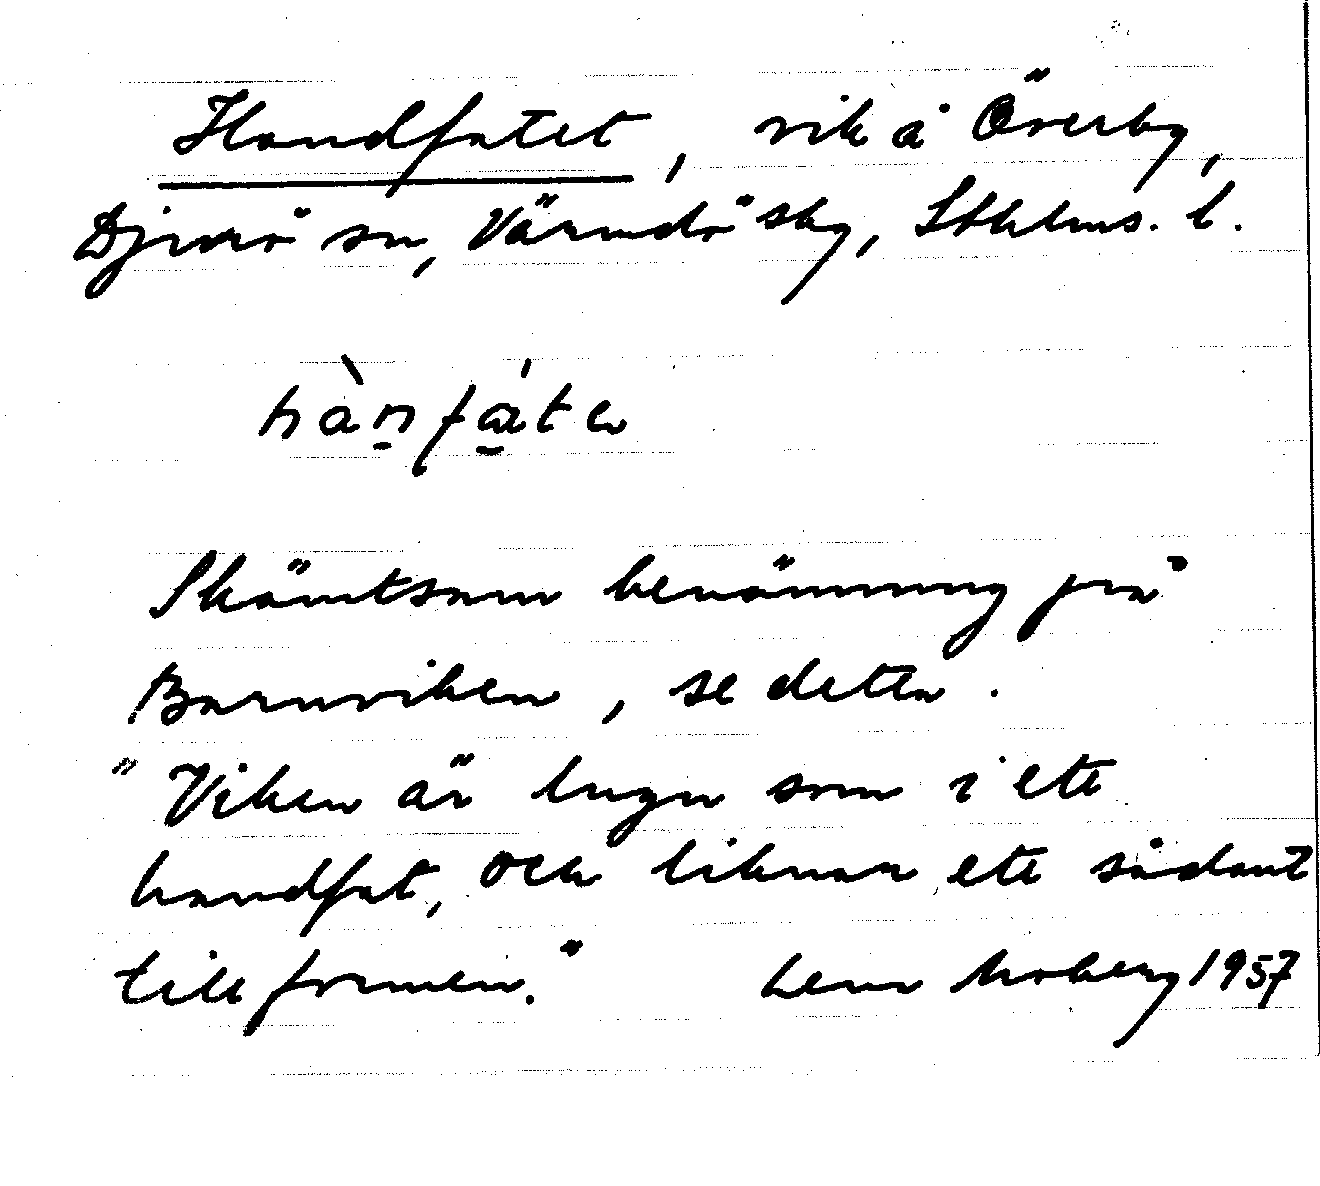 Handfatet, vik å Överby,
Djurö sn, Värmdö skg, Sthlms. l.
hànfát
Skämtsam benämning på
Barnviken, se detta.
"Viken är lugn som i ett
handfat, och liknar ett sådant
till formen." Lena Moberg 1957